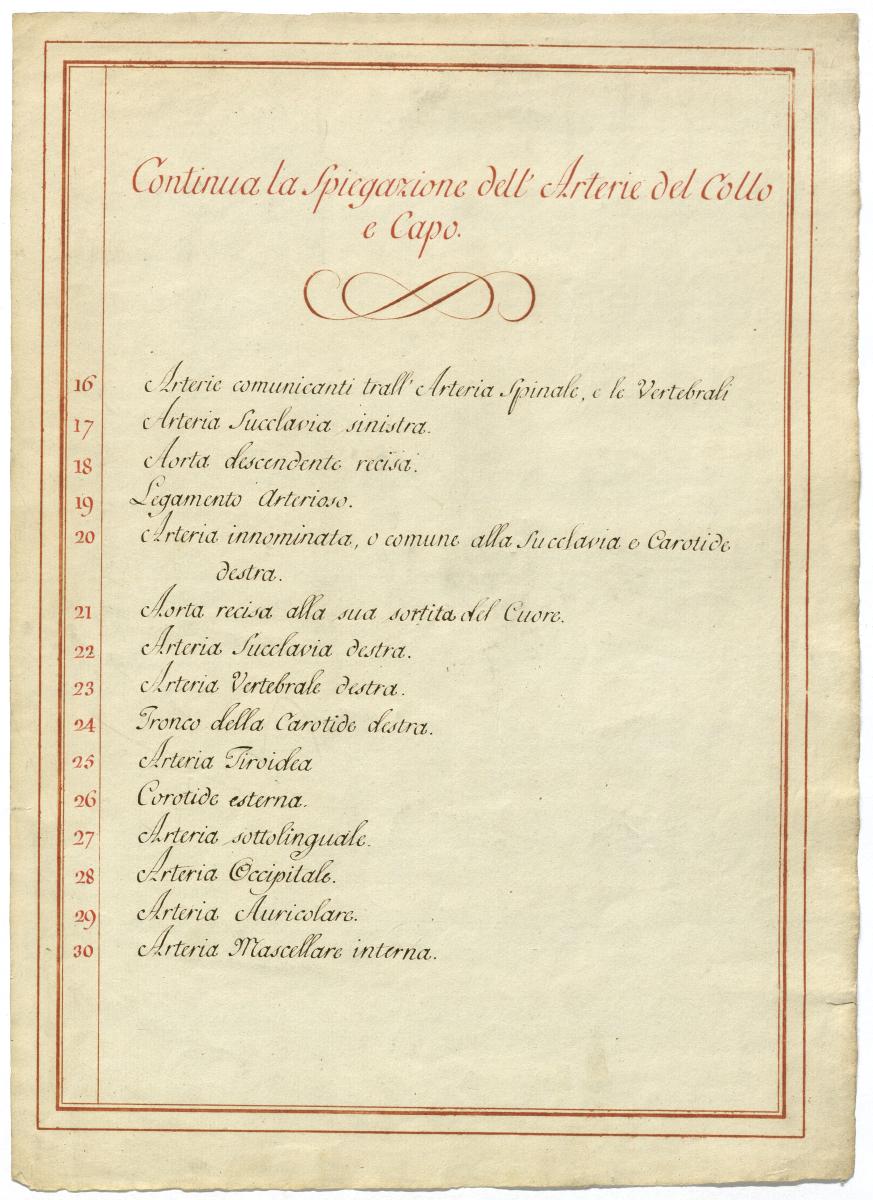 Continua la Spiegazione dell' Arterie del Collo
e Capo.
16 Arterie comunicanti trall' Arteria Spinale, e le Vertebrali
17 Arteria Succlavia sinistra.
18 Aorta descendente recisa.
19 Legamento Arterioso.
20 Arteria innominata, o comune alla Succlavia e Carotide
destra.
21 Aorta recisa alla sua sortita del Cuore.
22 Arteria Succlavia destra.
23 Arteria Vertebrale destra.
24 Tronco della Carotide destra.
25 Arteria Tiroidea
26 Corotide esterna.
27 Arteria sottolinguale.
28 Arteria Occipitale.
29 Arteria Auricolare.
30 Arteria Mascellare interna.